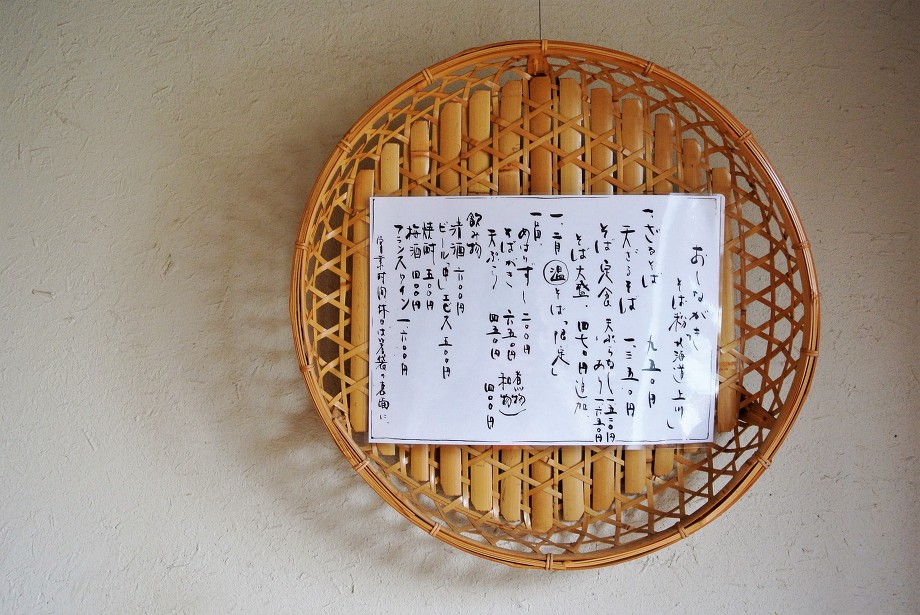 おしながき
そば粉「北海道」上川」
一、ざるそば 九五〇円
天ざるそば 一、三五〇円
そば定食 天ぷらなし 一、一五〇円
〃 あり 一、六五〇円
そば大盛 四七〇円追加
一、一月 温 そば「限定」
一品
めはりずし 二〇〇円
そばがき 六五〇円
天ぷら 四五〇円
煮物
和物 四〇〇円
飲み物
清酒 六〇〇円
ビール「中」エビス 五〇〇円
焼酎 五〇〇円
梅酒 四〇〇円
フランスワイン 一、六〇〇円
営業時間休日は箸袋の裏面に